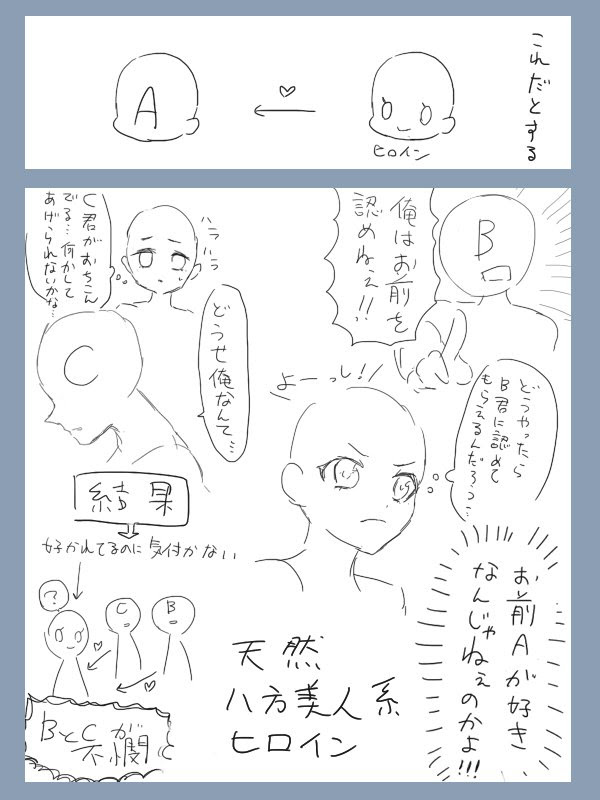 これだとする
A
ヒロイン
B
俺はお前を
認めねぇ!!
C君がおちこん
でる…何かして
あげられないかな…
ハラハラ
C
どうせ俺なんて…
どうやったら
B君に認めて
もらえるんだろう…
よーっし!!
結果
好かれてるのに気付かない
?
C
B
お前Aが好き
なんじゃねぇのかよ!!!
天然
八方美人系
ヒロイン
BとCが
不憫